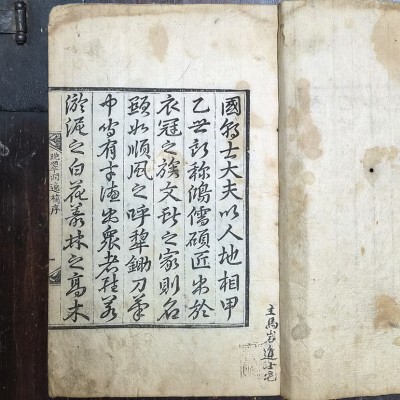 國朝士大夫以人地相甲
乙世所稱鴻儒碩匠出於
衣冠之族文獻之家則名
顯如順風之呼犁鋤刀筆
中有才德出衆者若
淤泥之白花叢林之高木
晚翠遺稿序
主馬岩進士宅